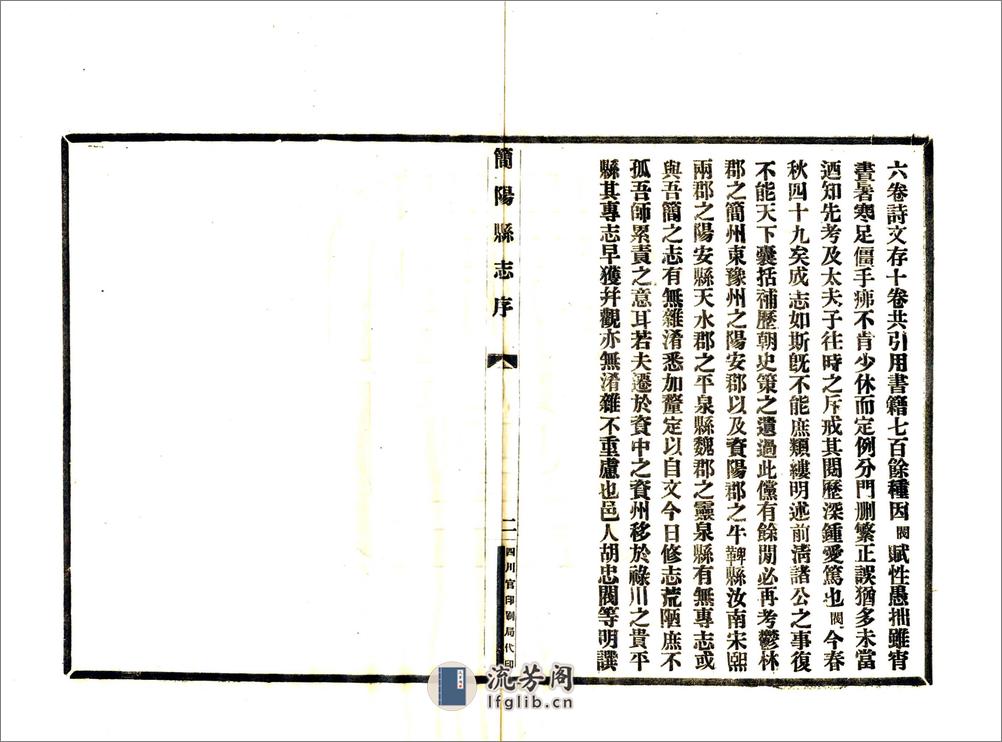 六卷詩文存十卷共引用書籍七百餘種因閥賦性愚拙雖宵
晝暑寒足僵手疿不肯少休而定例分門刪繁正誤猶多未當
迺知先考及太夫子往時之斥戒其閱歷深鍾愛篤也閥今春
秋四十九矣成志如斯旣不能庶類縷明述前淸諸公之事復
不能天下囊括補歷朝史策之遺過此儻有餘閒必再考鬱林
郡之簡州東豫州之陽安郡以及資陽郡之牛鞞縣汝南宋熙
兩郡之陽安縣天水郡之平泉縣魏郡之靈泉縣有無專志或
與吾簡之志有無雜淆悉加釐定以自文今日修志荒陋庶不
孤吾師累責之意耳若夫遷於資中之資州移於祿川之貴平
縣其專志早獲幷觀亦無淆雜不重慮也邑人胡忠閥等明譔
簡陽縣志序
二
四川官印刷局代印
流芳阁
lfglib.cn